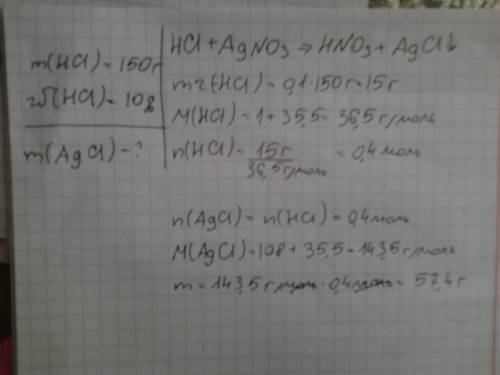 m(HCl) = 150г
ω(HCl) = 10%
m(AgCl) - ?
HCl + AgNO₃ ⇒ HNO₃ + AgCl↓
mч(HCl) = 0,1·150г = 15г
M(HCl) = 1 + 35,5 = 36,5 г/моль
n(HCl) = 15г / 36,5г/моль = 0,4моль
n(AgCl) = n(HCl) = 0,4моль
M(AgCl) = 108 + 35,5 = 143,5г/моль
m = 143,5г/моль · 0,4моль = 57,4г